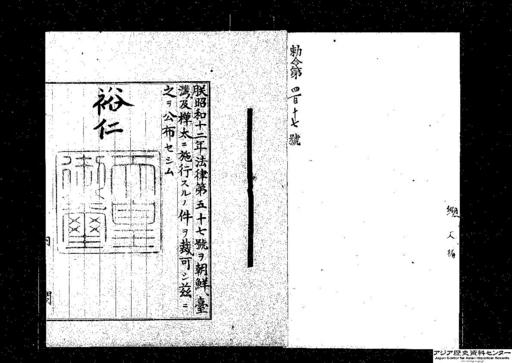 勅令第四百十七號
朕昭和十二年法律第五十七號ヲ朝鮮、臺
灣及樺太ニ施行スルノ件ヲ裁可シ茲ニ
之ヲ公布セシム
裕仁
天皇御璽
内閣
アジア歴史資料センター
Japan Center for Asian Historical Records